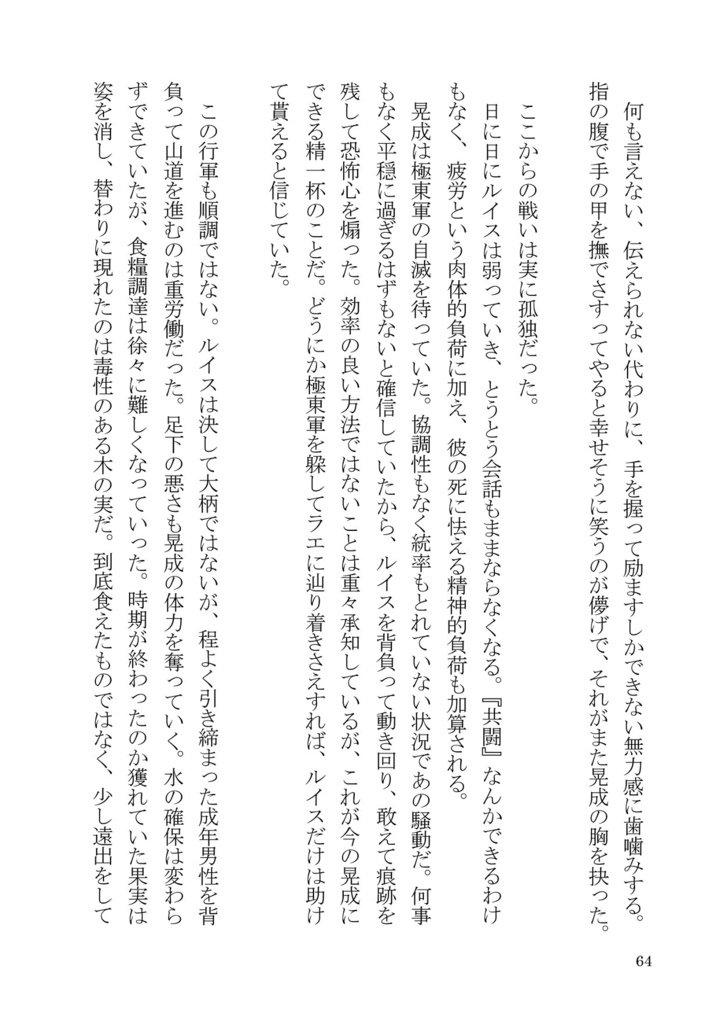 何も言えない、伝えられない代わりに、手を握って励ますしかできない無力感に歯噛みする。
指の腹で手の甲を撫でさすってやると幸せそうに笑うのが儚げで、それがまた晃成の胸を抉った。
ここからの戦いは実に孤独だった。
日に日にルイスは弱っていき、とうとう会話もままならなくなる。『共闘』なんかできるわけ
もなく、疲労という肉体的負荷に加え、彼の死に怯える精神的負荷も加算される。
晃成は極東軍の自滅を待っていた。協調性もなく統率もとれていない状況であの騒動だ。何事
もなく平穏に過ぎるはずもないと確信していたから、ルイスを背負って動き回り、敢えて痕跡を
残して恐怖心を煽った。効率の良い方法ではないことは重々承知しているが、これが今の晃成に
できる精一杯のことだ。どうにか極東軍を躱してラエに辿り着きさえすれば、ルイスだけは助け
て貰えると信じていた。
この行軍も順調ではない。ルイスは決して大柄ではないが、程よく引き締まった成年男性を背
負って山道を進むのは重労働だった。足下の悪さも晃成の体力を奪っていく。水の確保は変わら
ずできていたが、食糧調達は徐々に難しくなっていった。時期が終わったのか獲れていた果実は
姿を消し、替わりに現れたのは毒性のある木の実だ。到底食えたものではなく、少し遠出をして
64